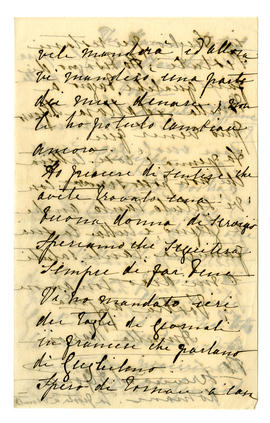 ve li manderà ed allora
vi manderò una parte
dei miei denari, non
li ho potuto cambiare
ancora.
Ho piacere di sentire che
avete trovato una
buona donna di servizio
Speriamo che seguiterà
sempre di far bene
Vi ho mandato ieri
dei tagli di Giornali
in francese che parlano
di Guglielmo.
Spero di tornare a casa